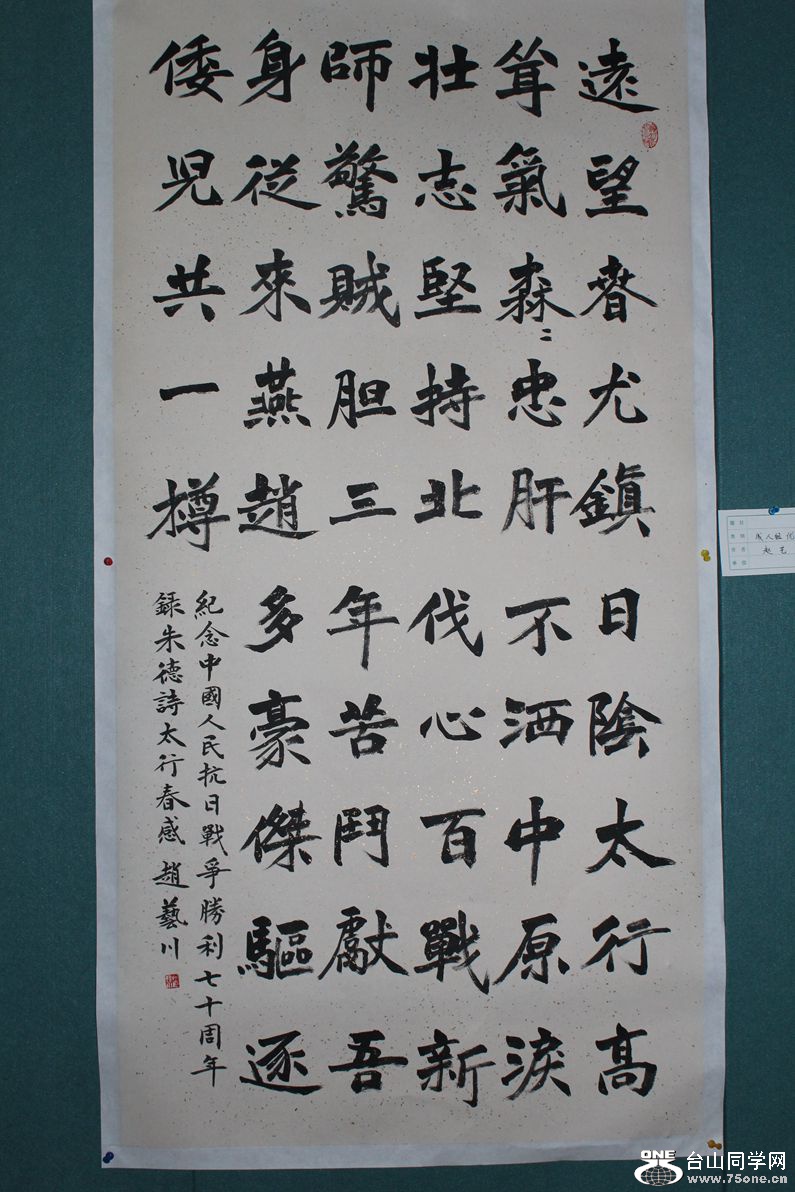 遠望春尤鎮日陰太行高
耸氣森〻忠肝不洒中原淚
壯志堅持北伐心百戰新
師驚賊胆三年苦鬥獻吾
身從來燕趙多豪傑驅逐
倭児共一樽
紀念中國人民抗日戰爭勝利七十周年
録朱德詩太行春感 趙藝川
成人
赵艺
ONE
台山同学网
www.75one.cn